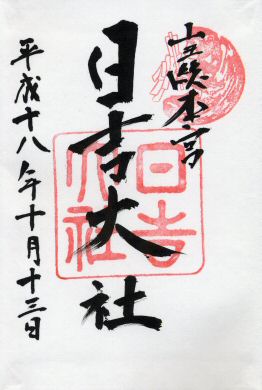 山王総本宮
日吉大社
平成十八年十月十三日
日吉大社